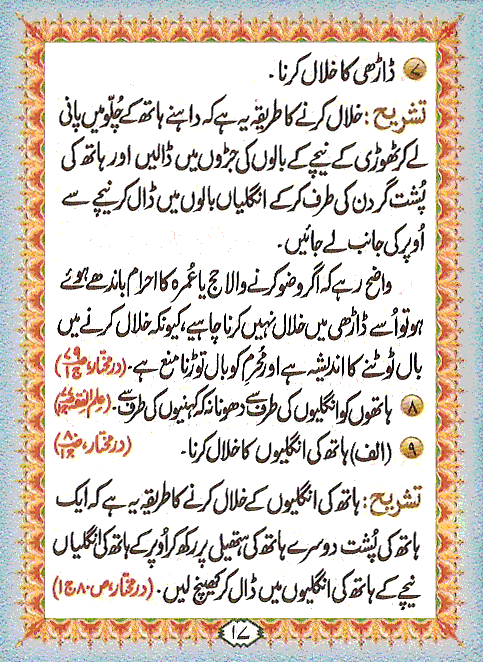 ۷ ڈاڑھی کا خلال کرنا۔
تشریح: خلال کرنے کا طریقہ یہ ہے کہ داہنے ہاتھ کے چُلّو میں پانی
لے کر ٹھوڑی کے نیچے کے بالوں کی جڑوں میں ڈالیں اور ہاتھ کی
پُشت گردن کی طرف کرکے انگلیاں بالوں میں ڈال کر نیچے سے
اُوپر کی جانب لے جائیں۔
واضح رہے کہ اگر وضو کرنے والا حج یا عُمرہ کا احرام باندھے ہوئے
ہو تو اُسے ڈاڑھی میں خلال نہیں کرنا چاہیے، کیونکہ خلال کرنے میں
بال ٹوٹنے کا اندیشہ ہے اور مُحرِم کو بال توڑنا منع ہے۔ (در مختار، ص ۷۹ ج ۱)
۸ ہاتھوں کو انگلیوں کی طرف سے دھونا نہ کہ کہنیوں کی طرف سے۔ (علم الفقہ
۹ (الف) ہاتھ کی انگلیوں کا خلال کرنا۔ (در مختار، ص ۸۰ ج ۱)
تشریح: ہاتھ کی انگلیوں کے خلال کرنے کا طریقہ یہ ہے کہ ایک
ہاتھ کی پُشت دوسرے ہاتھ کی ہتھیلی پر رکھ کر اُوپر کے ہاتھ کی انگلیاں
نیچے کے ہاتھ کی انگلیوں میں ڈال کر کھینچ لیں۔ (در مختار، ص ۸۰ ج ۱)
۱۷